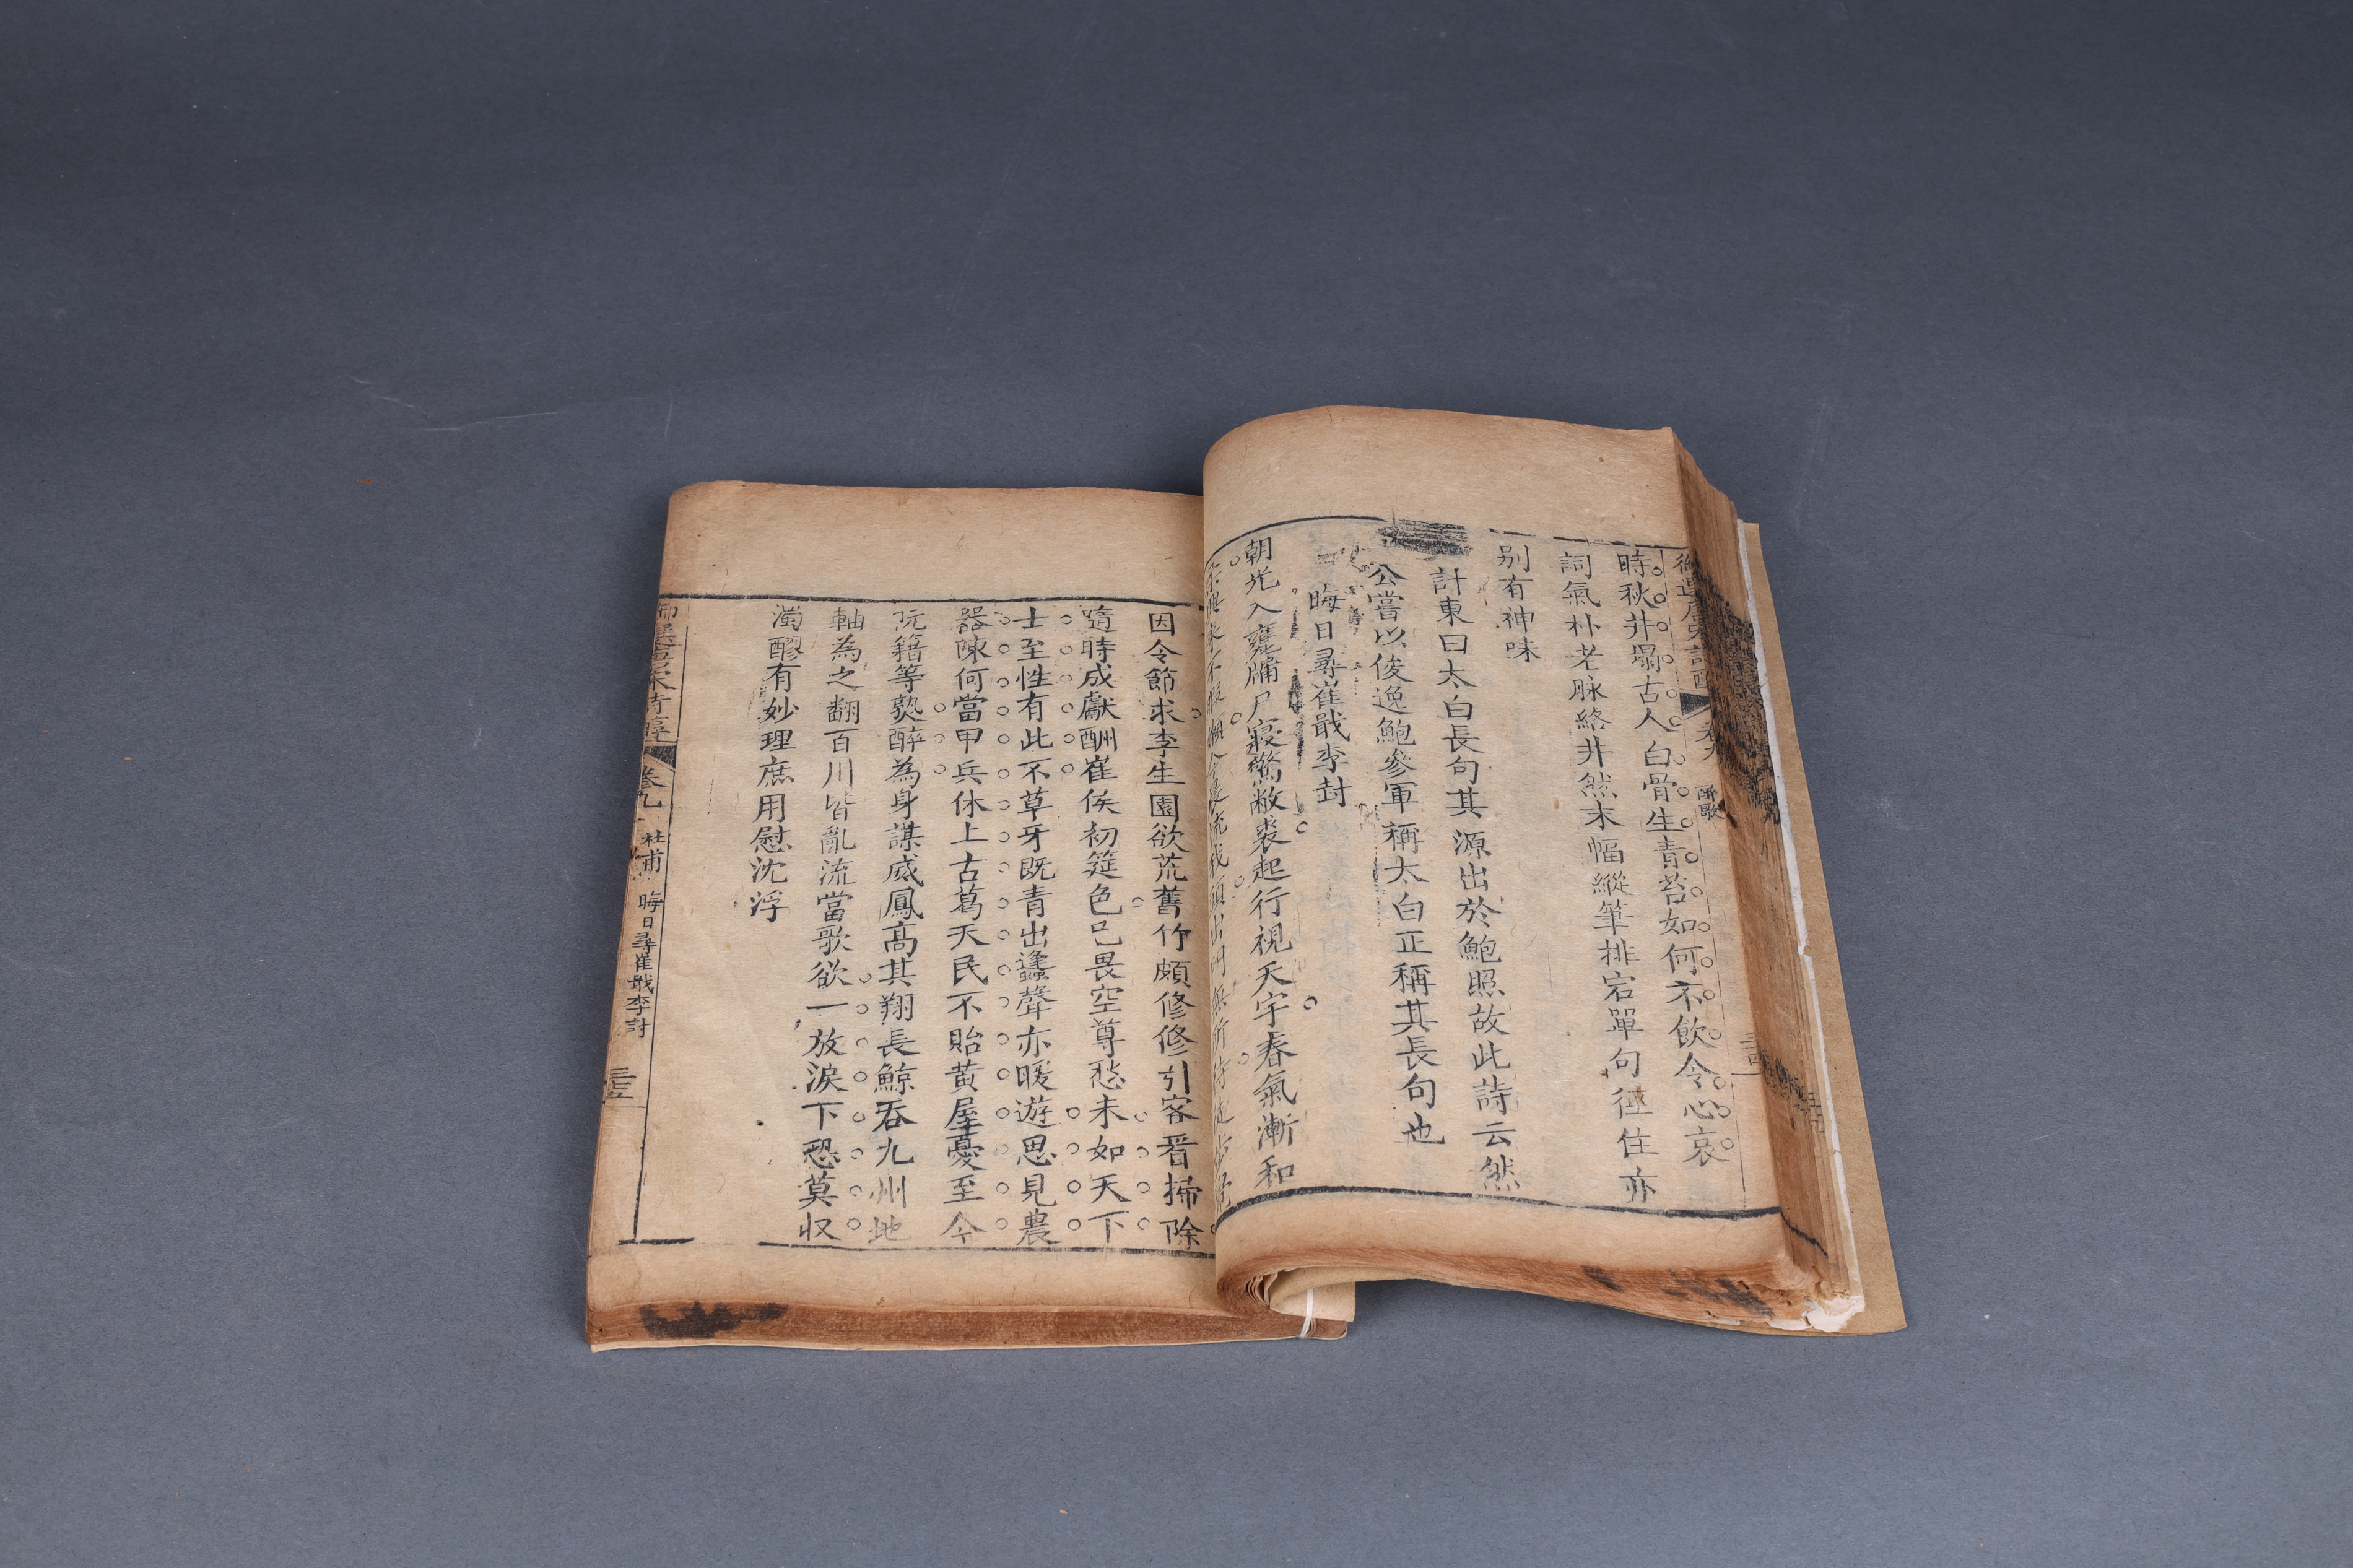 時秋井塌古人白骨生青苔如何不飲令心哀
詞氣朴老脉絡井然末幅縱筆排宕單句徑住亦
别有神味
計東曰太白長句其源出於鮑照故此詩云然
公嘗以俊逸鮑參軍稱太白正稱其長句也
晦日尋崔戢李封
朝光入甕牖尸寢驚敝裘起行視天宇春氣漸和
因令節求李生園欲荒舊竹頗修修引客看掃除
隨時成獻酬崔侯初筵色已畏空尊愁未如天下
士至性有此不草牙既青出蜂聲亦暖遊思見農
器陳何當甲兵休上古葛天民不貽黄屋憂至今
阮籍等熟醉為身謀威鳳高其翔長鯨吞九州地
軸為之翻百川皆亂流當歌欲一放淚下恐莫収
濁醪有妙理庶用慰沈浮
御選唐宋詩醇 卷九 杜甫 晦日尋崔戢李封 三五